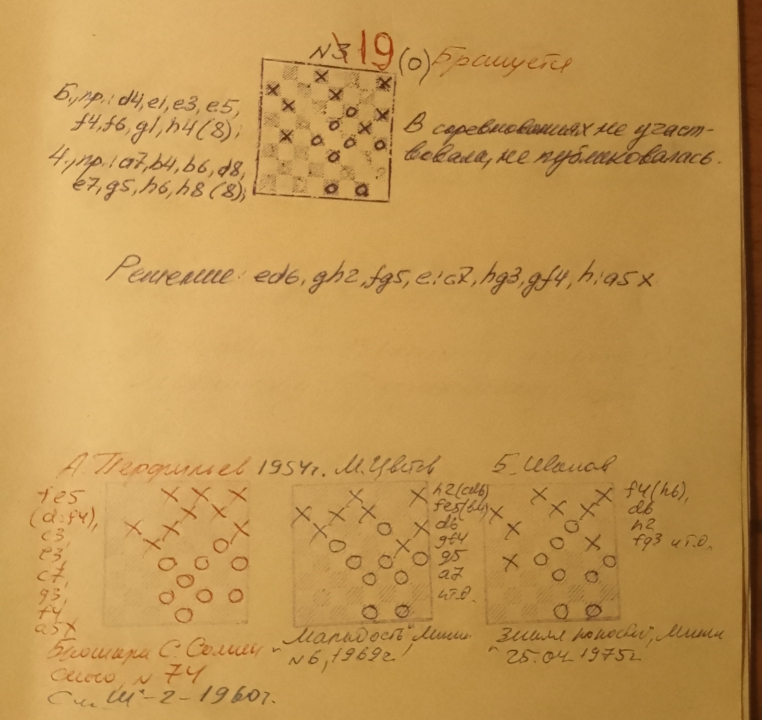 N3 19 (0) Бракуется
Б., пр.: d4, e1, e3, e5,
f4, f6, g1, h4 (8);
Ч., пр.: a7, b4, b6, d8,
e7, g5, h6, h8 (8);
В соревнованиях не участ-
вовала, не публиковалась.
Решение: ed6, gh2, fg5, e:a7, hg3, gf4, h:a5x
А. Перфильев 1954г.
fe5
(d:f4),
c3
e3
c7
g3,
f4
a5x
Брошюра С.
N 74
См. "Ш"-2-1960г.
М. Цветов
h2(cd6)
fe5(b4)
d6
gf4
g5
a7
и т.д.
"Маладосць", Минск
N6, 1969г.
Б. Иванов
f4(h6),
d6
h2
fg3 и т.д.
25.04.1975г.